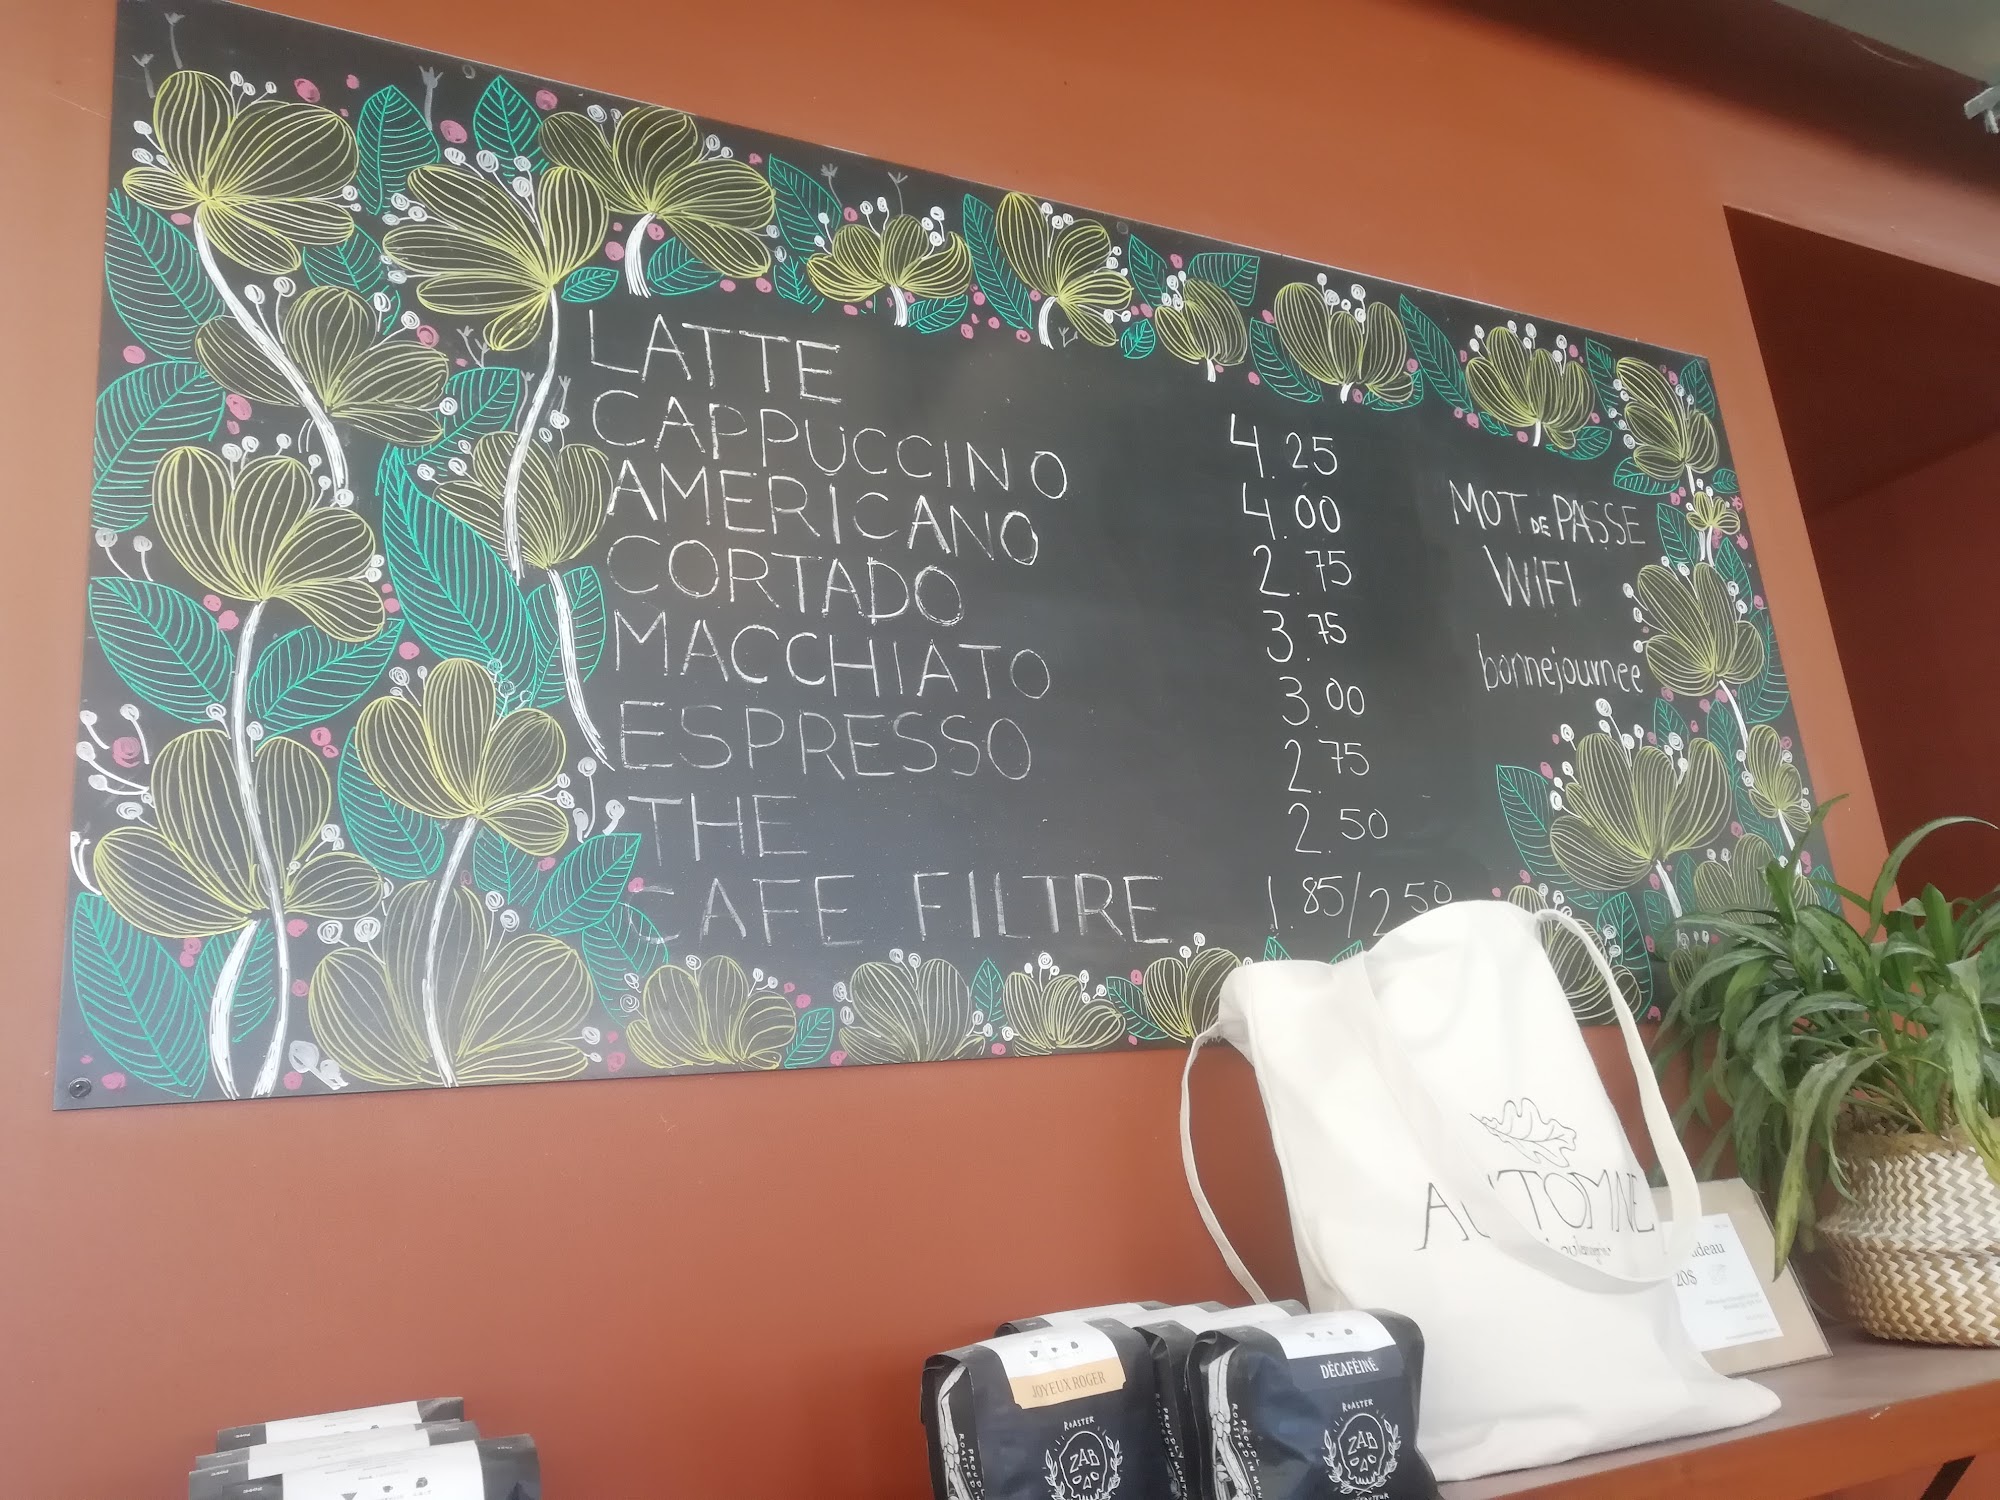 LATTE 4.25
CAPPUCCINO 4.00
AMERICANO 2.75
CORTADO 3.75
MACCHIATO 3.00
ESPRESSO 2.75
THE 2.50
CAFE FILTRE 1.85/2.50
MOT DE PASSE
WIFI
bonnejournee
AUTOMNE
20$
JOYEUX ROGER
ROASTER
ZAB
DÉCAFÉINÉ
ROASTER
ZAB